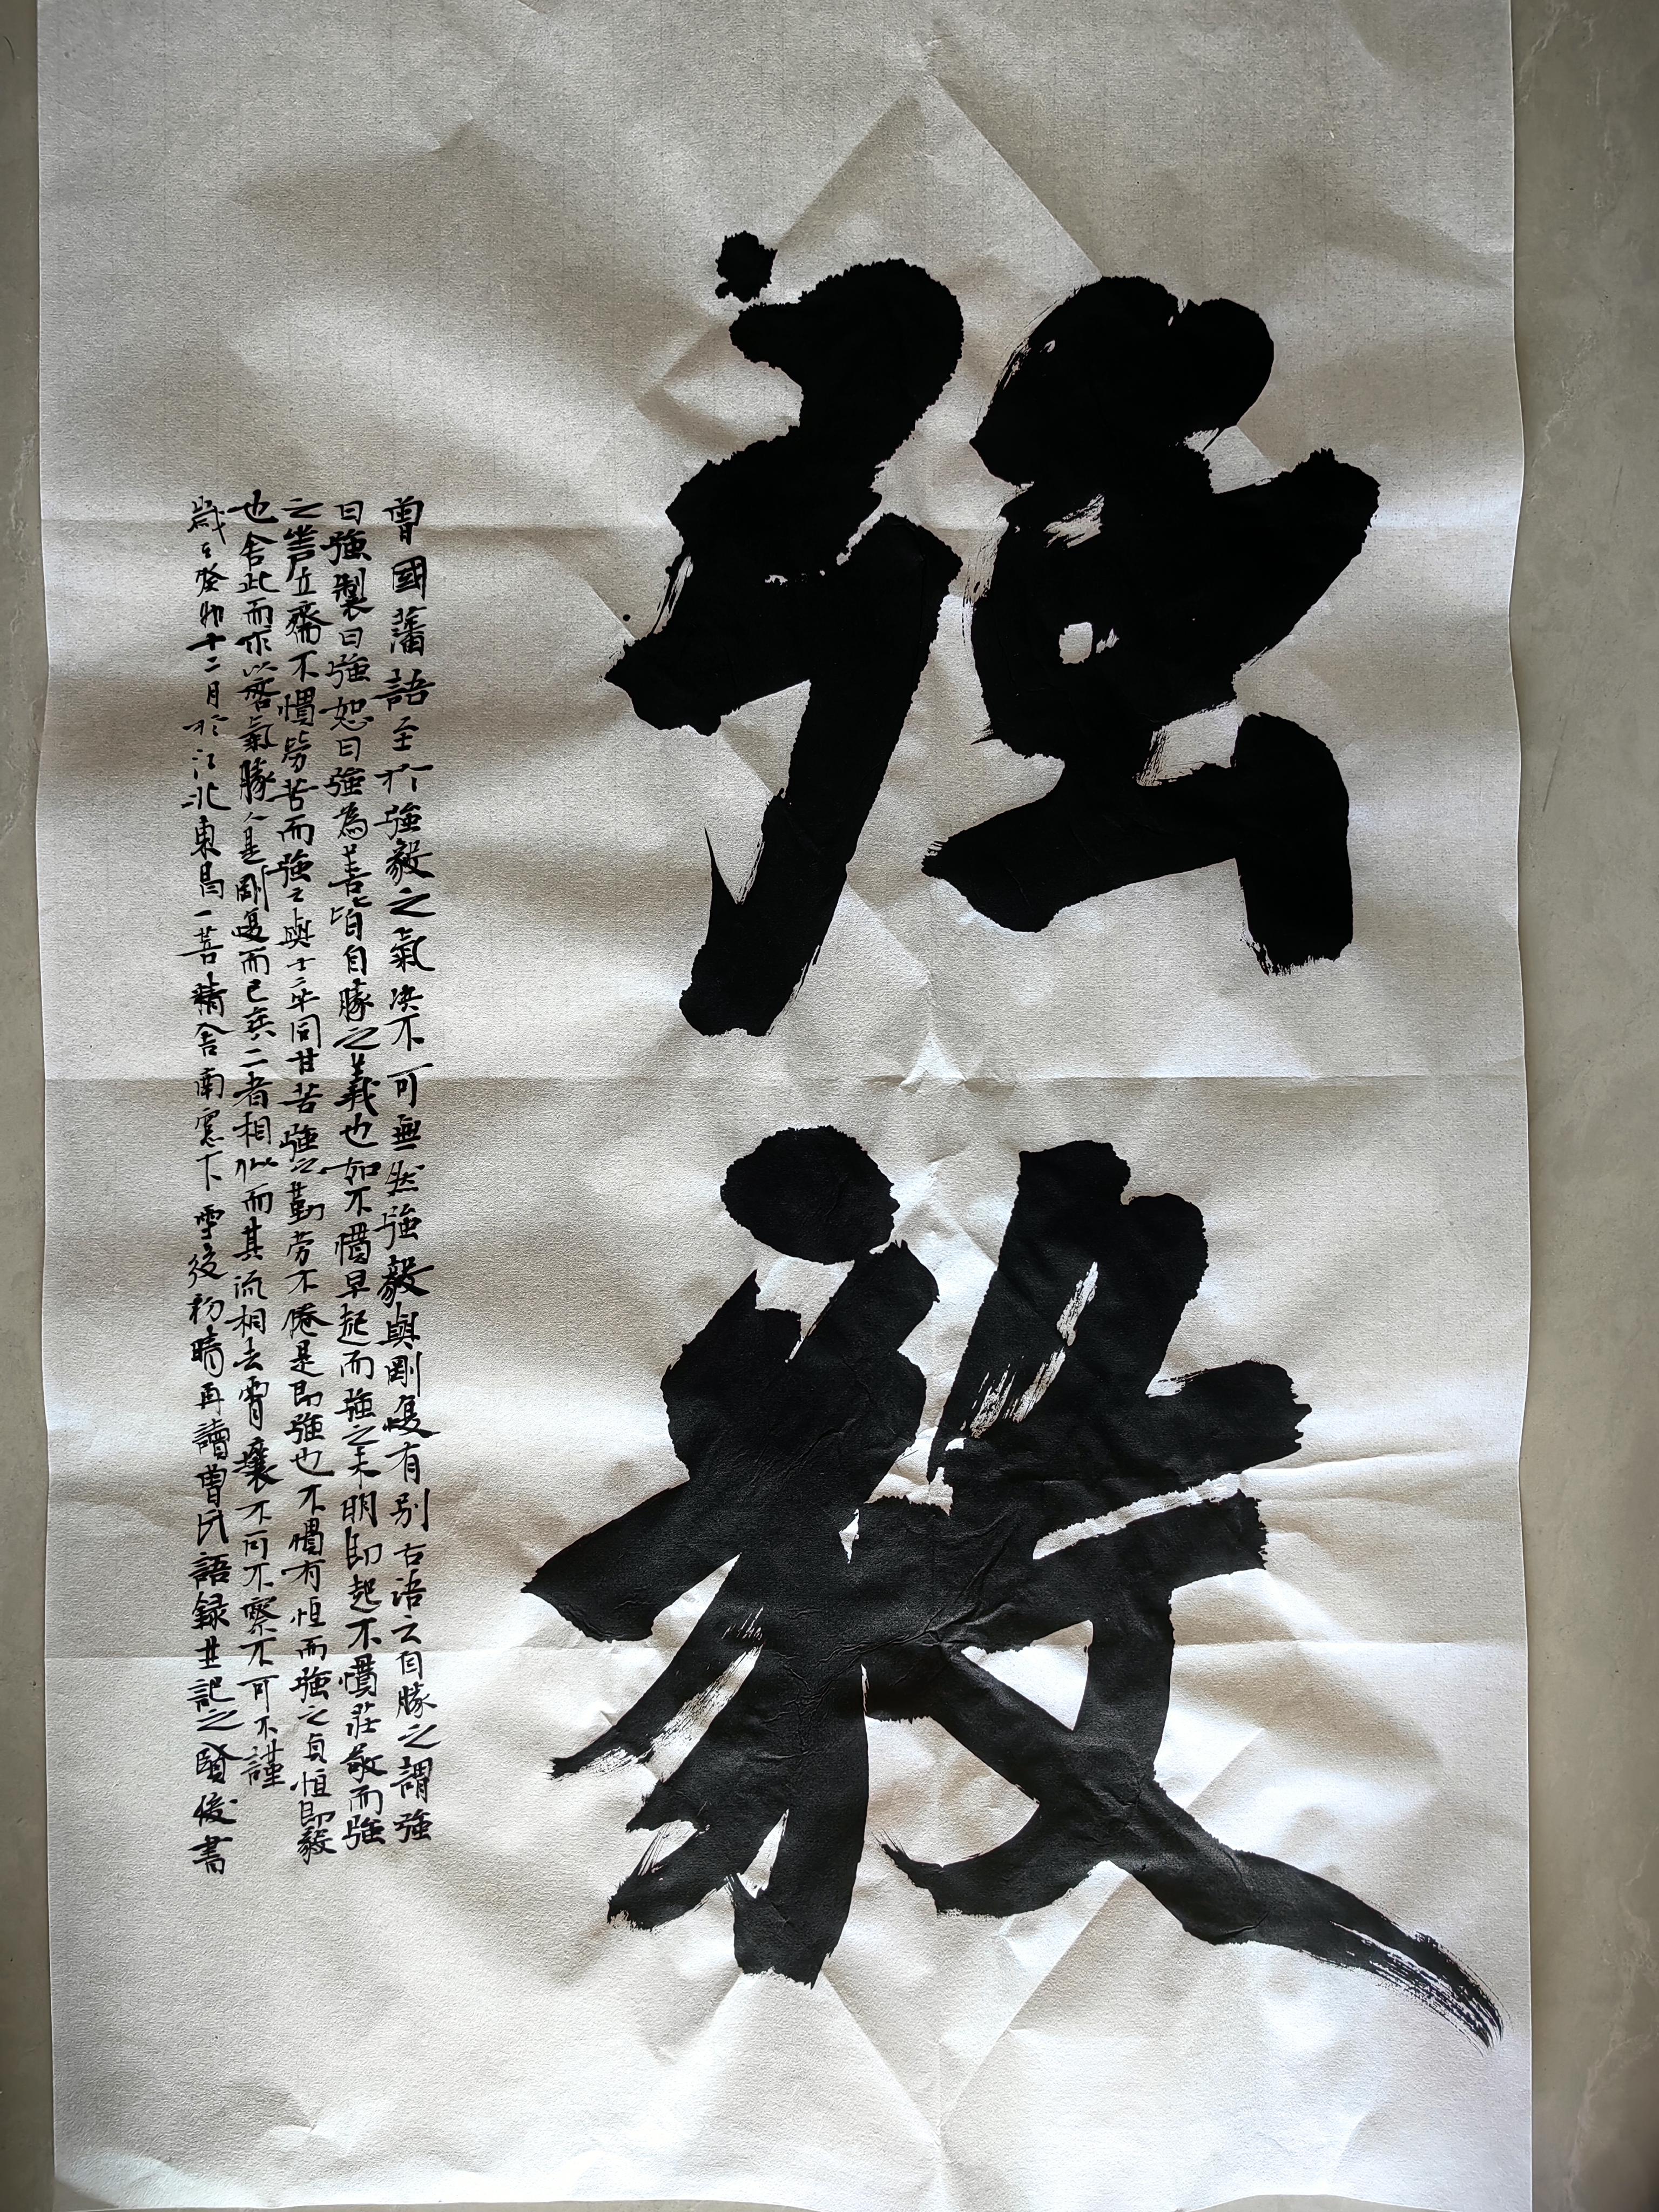 強
毅
曾國藩語至於強毅之氣決不可無然強毅與剛愎有別古語云自勝之謂強
曰強製曰強恕曰強為善皆自勝之義也如不慣早起而強之未明即起不慣莊敬而強
之坐尸立齋不慣勞苦而強之與士卒同甘苦強之勤勞不倦是即強也不慣有恒而強之貞恒即毅
也舍此而求以客氣勝人是剛愎而已矣二者相似而其流相去霄壤不可不察不可不謹
歲在癸卯十二月於江北東昌一菩精舍南窓下雪後初晴再讀曾氏語録並記之賢俊書